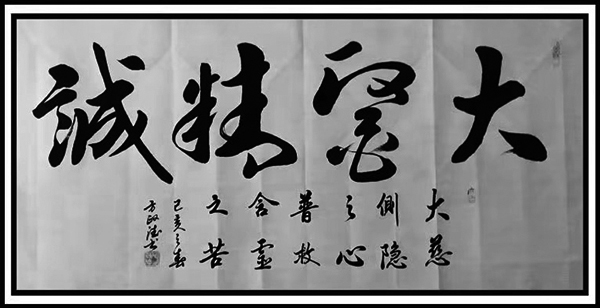 大醫精誠
大慈
側隐
之心
普救
含靈
之苦
己亥之春